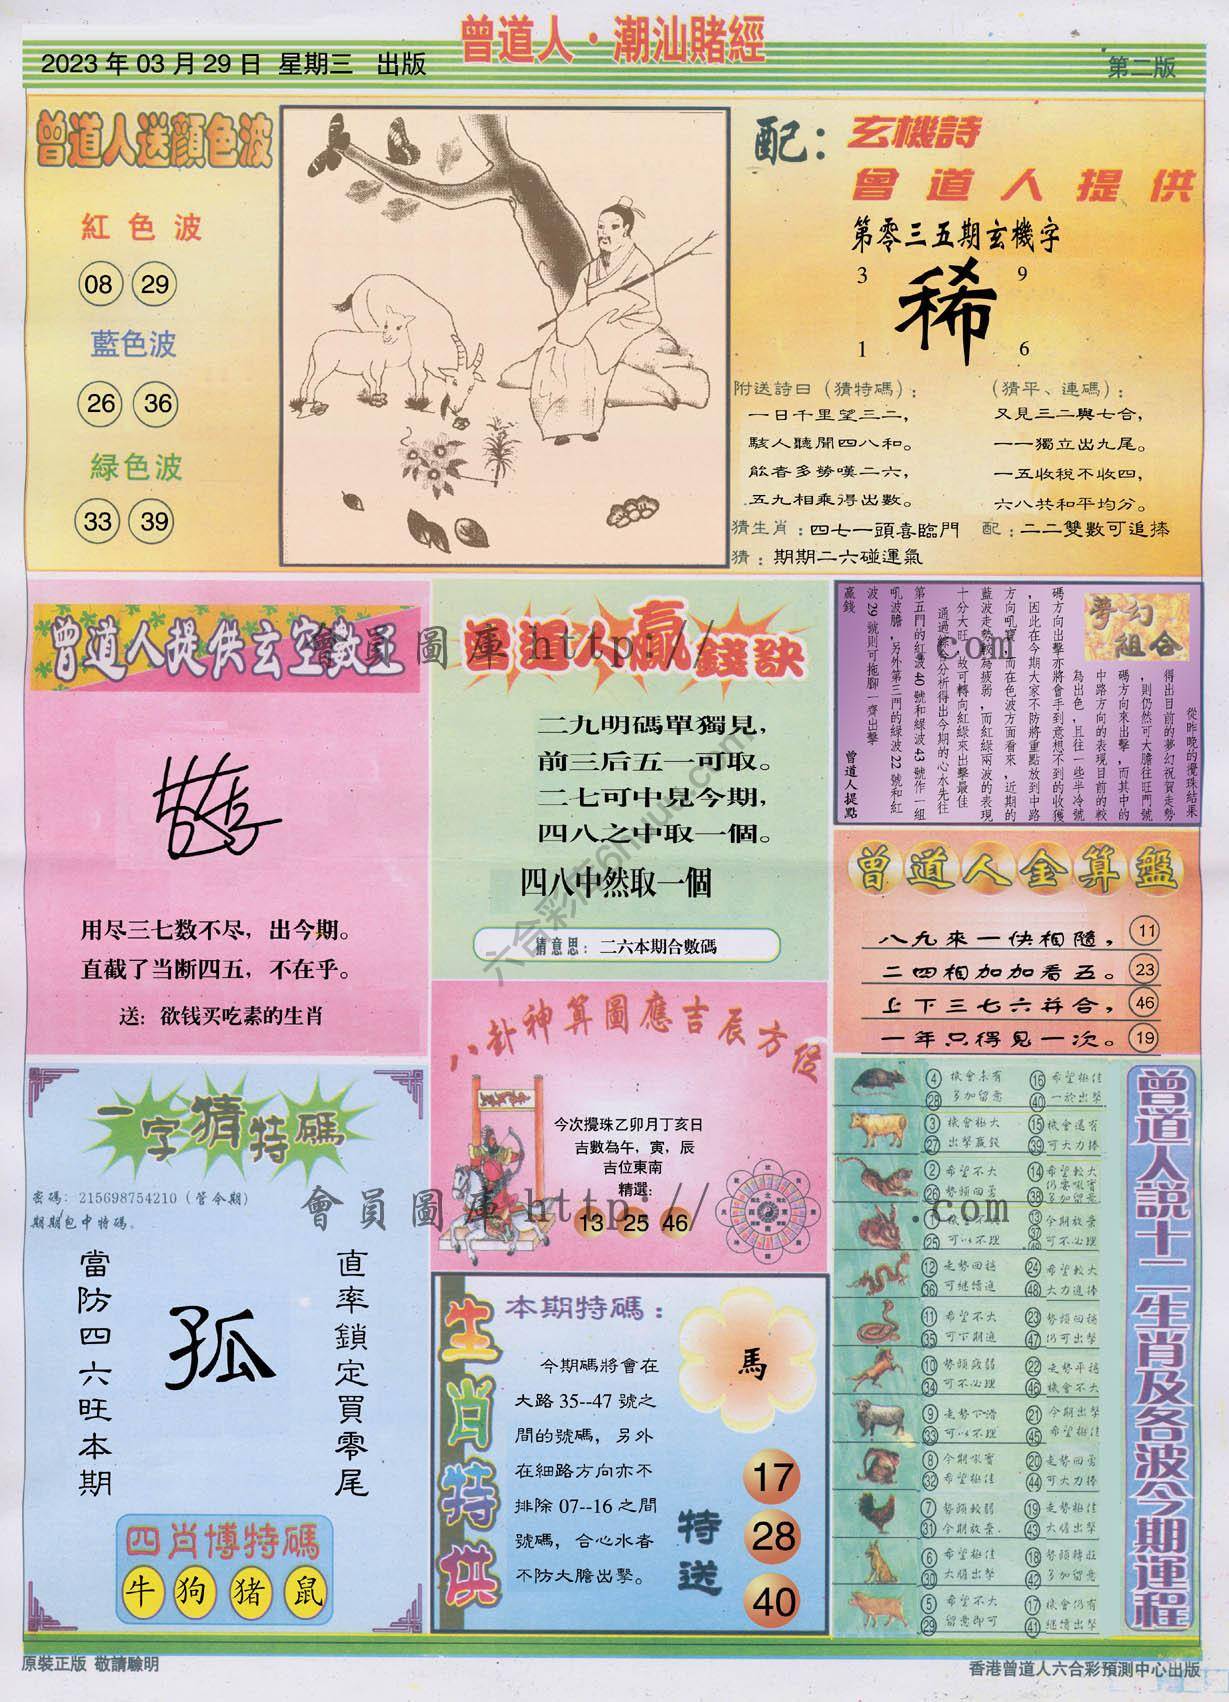 曾道人·潮汕賭經
2023 年 03 月 29 日 星期三 出版
第二版
曾道人送顏色波
紅色波
08 29
藍色波
26 36
緑色波
33 39
配：玄機詩
曾道人提供
第零三五期玄機字
3 9
稀
1 6
附送詩曰（猜特碼）：
一日千里望三二，
駭人聽聞四八和。
能者多勞嘆二六，
五九相乘得出數。
（猜平、連碼）：
又見三二與七合，
一一獨立出九尾。
一五收稅不收四，
六八共和平均分。
猜生肖：四七一頭喜臨門
配：二二雙數可追捧
猜：期期二六碰運氣
曾道人提供玄空數王
用尽三七数不尽，出今期。
直截了当断四五，不在乎。
送：欲钱买吃素的生肖
曾道人贏錢訣
二九明碼單獨見，
前三后五一可取。
二七可中見今期，
四八之中取一個。
四八中然取一個
猜意思：二六本期合數碼
夢幻組合
從昨晚的攪珠結果
得出目前的夢幻祝賀走勢
，則仍然可大膽往旺門號
碼方向來出擊，而其中的
中路方向的表現目前的較
為出色，且往一些半冷號
碼方向出擊亦將會手到意想不到的收獲
，因此在今期大家不防將重點放到中路
方向吼寶，而在色波方面看來，近期的
藍波走勢較為疲弱，而紅綠兩波的表現
十分大旺，故可轉向紅綠來出擊最佳
通過綜合分析得出今期的心水先往
第五門的紅波 40 號和綠波 43 號作一組
吼波膽，另外第三門的綠波 22 號和紅
波 29 號則可拖腳一齊出擊
贏錢
曾道人提點
曾道人金算盤
八九來一伏相隨， 11
二四相加加看五。 23
上下三七六并合， 46
一年只得見一次。 19
八卦神算圖應吉辰方位
今次攪珠乙卯月丁亥日
吉數為午，寅，辰
吉位東南
精選：
13 25 46
一字猜特碼
密碼：215698754210（管令期）
期期包中特碼。
直率鎖定買零尾
孤
當防四六旺本期
四肖博特碼
牛 狗 猪 鼠
生肖特供
本期特碼：
今期碼將會在
大路 35--47 號之
間的號碼，另外
在細路方向亦不
排除 07--16 之間
號碼，合心水者
不防大膽出擊。
馬
特送
17
28
40
曾道人説十二生肖及各波今期運程
4 機會未有 16 希望極佳
28 多加留意 40 一於出擊
3 機會極大 15 機會還有
27 出擊贏錢 39 可大力捧
2 希望不大 14 希望較大
26 勢頭回勇 38 仍要吼實多加留意
1 機會不大 13 今期放棄
25 可以不理 37 49 可不必理
12 走勢回穩 24 希望較大
36 可繼續追 48 大力追捧
11 希望不大 23 勢頭回穩
35 可下期追 47 仍可出擊
10 勢頭疲弱 22 走勢平穩
34 可不必理 46 機會不大
9 走勢下滑 21 今期出擊
33 可以不理 45 希望極佳
8 今期吼實 20 走勢回勇
32 希望極佳 44 可大力捧
7 勢頭較弱 19 走勢極佳
31 今期放棄 43 大膽出擊
6 希望極佳 18 勢頭轉旺
30 大膽出擊 42 多加留意
5 希望不大 17 機會仍有
29 留意即可 41 繼續出擊
會員圖庫 http:// .com
會員圖庫 http:// .com
原裝正版 敬請驗明
香港曾道人六合彩預測中心出版